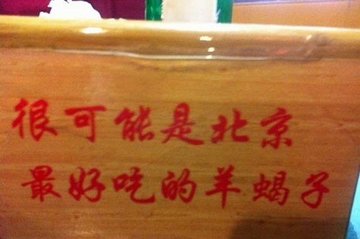 很可能是北京
最好吃的羊蝎子